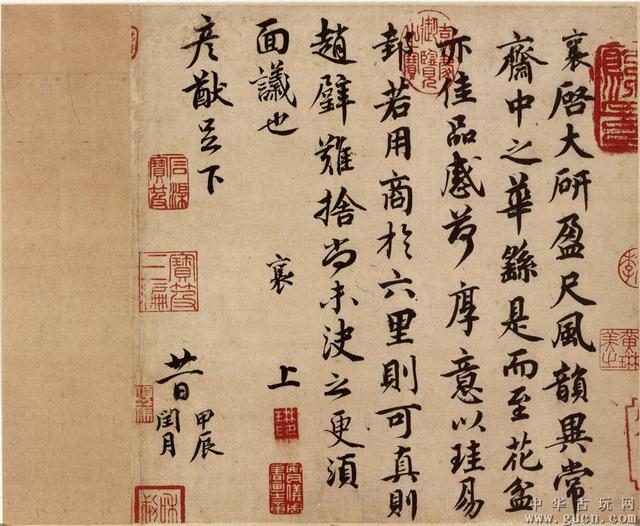 襄啓大研盈尺風韻異常
齋中之華繇是而至花盆
亦佳品感荷厚意以珪易
邽若用商於六里則可真則
趙璧難捨尚未決之更須
面議也
襄
上
彦猷足下
廿一日
甲辰
閏月
中华古玩网
www.gucn.com